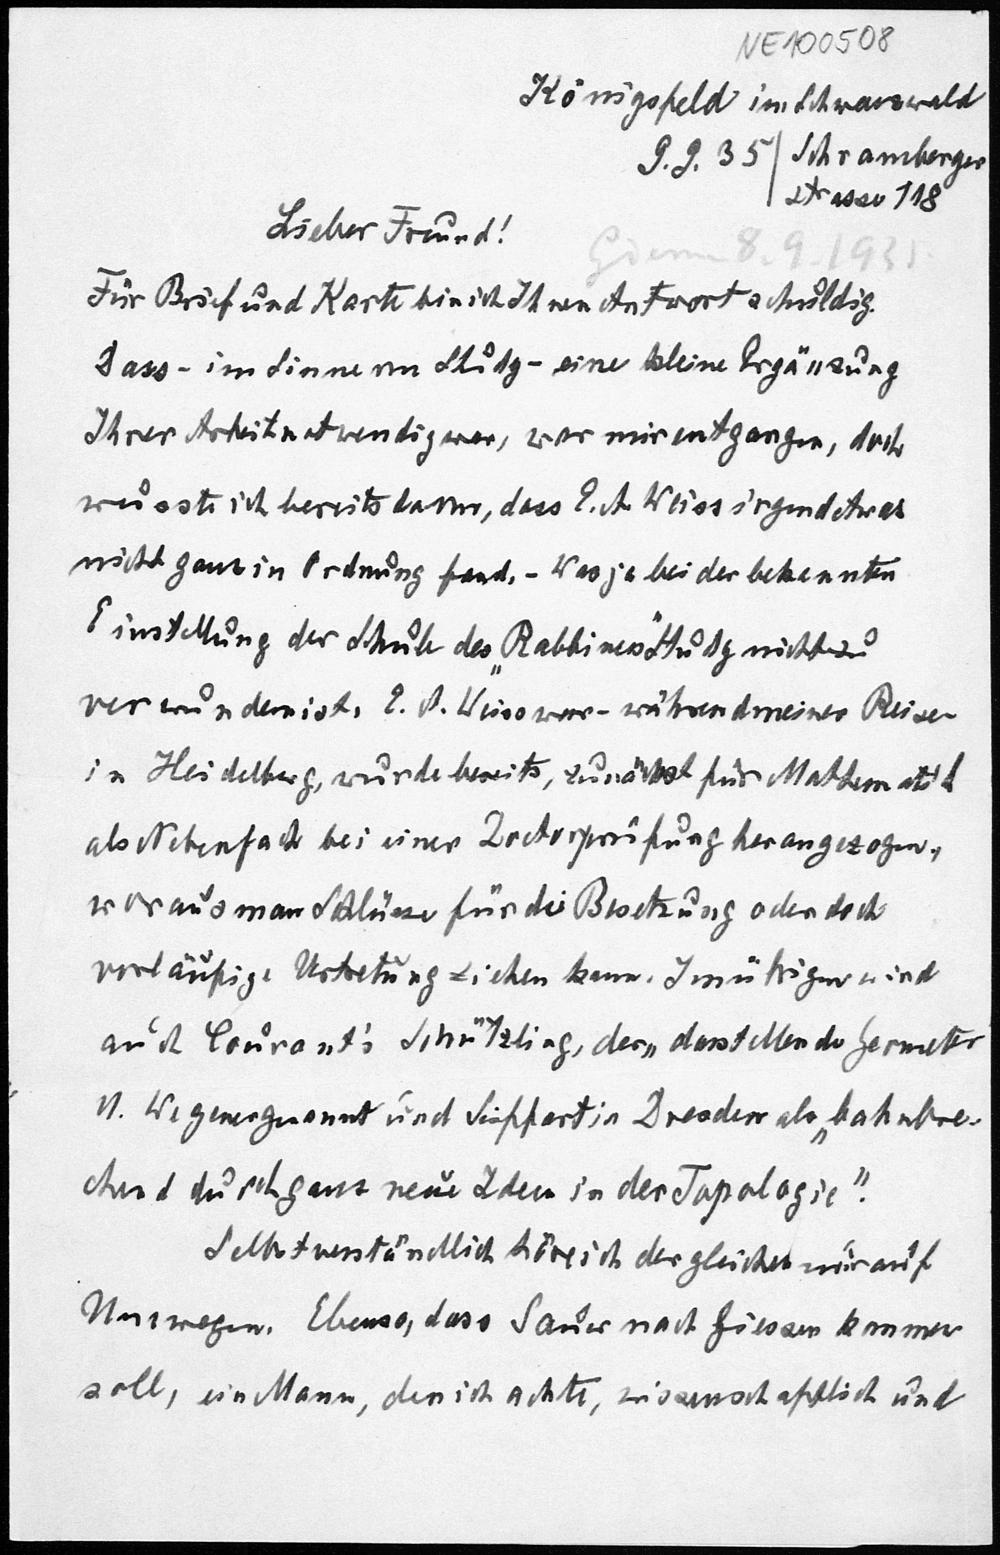 NE100508
Königsfeld im Schwarzwald
9.9.35 | Schramberger
strasse 118
Lieber Freund!
8.9.1935
Für Brief und Karte bin ich Ihnen Antwort schuldig.
Dass - im Sinne von Study - eine kleine Ergänzung
Ihrer Arbeit notwendig war, war mir entgangen, doch
wusste ich bereits davon, dass E. A. Weiss irgend etwas
nicht ganz in Ordnung fand. - Was ja bei der bekannten
Einstellung der Schule des „Rabbiners" Study nicht zu
verwundern ist. E. A. Weiss war - während meiner Reise -
in Heidelberg, wurde bereits, zunächst für Mathematik
als Nebenfach bei einer Doctorprüfung herangezogen,
woraus man Schlüsse für die Besetzung oder doch
vorläufige Vertretung ziehen kann. Im übrigen wird
auch Courant's Schützling, der „darstellende Geometer
Wegener genannt und Seiffert in Dresden als „bahnbre-
chend durch ganz neue Ideen in der Topologie".
Selbstverständlich höre ich dergleichen nur auf
Umwegen. Ebenso, dass Sauer nach Giessen kommen
soll, ein Mann, den ich achte, wissenschaftlich und